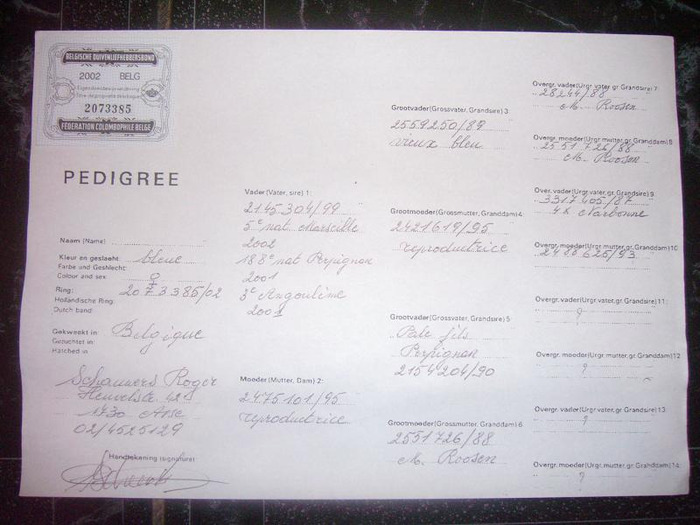 BELGISCHE DUIVENLIEFHEBBERSBOND
2002 BELG
2073385
FEDERATION COLOMBOPHILE BELGE
PEDIGREE
Naam (Name)
Kleur en geslacht: bleue
Farbe und Geslecht:
Colour and sex ♀
Ring: 2073385/02
Hollandische Ring:
Dutch band:
Gekweekt in: Belgique
Gezuchtet in:
Hatched in
Schauwers Roger
02/4525129
Handtekening (signature)
Vader (Vater, sire) 1:
2145304/99
5e nat Marseille
2002
188e nat Perpignan
2001
3e Angoulème
2001
Moeder (Mutter, Dam) 2:
2475101/95
reproductrice
Grootvader (Grossvater, Grandsire) 3
2559250/89
vieux bleu
Grootmoeder (Grossmutter, Granddam) 4
2421619/95
reproductrice
Grootvader (Grossvater, Grandsire) 5
Pale fils
Perpignan
2154204/90
Grootmoeder (Grossmutter, Granddam) 6
2551726/88
M. Roosen
Overgr. vader (Urgr.vater, gr.Grandsire) 7
28244/88
M. Roosen
Overgr. moeder (Urgr.mutter, gr.Granddam) 8
2551726/88
M. Roosen
Over. vader (Urgr.vater, gr.Grandsire) 9
3317405/87
4x Narbonne
Overgr. moeder (Urgr.mutter, gr.Granddam) 10
2488625/93
Overgr. vader (Urgr.vater, gr.Grandsire) 11:
?
Overgr. moeder (Urgr.mutter, gr.Granddam) 12
?
Overgr. vader (Urgr.vater, gr.Grandsire) 13
?
Overgr. moeder (Urgr.mutter, gr.Granddam) 14:
?